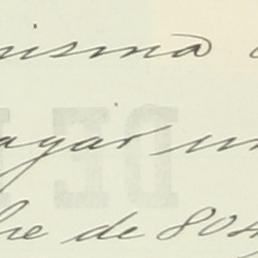 misma
pagar un
bre de 804